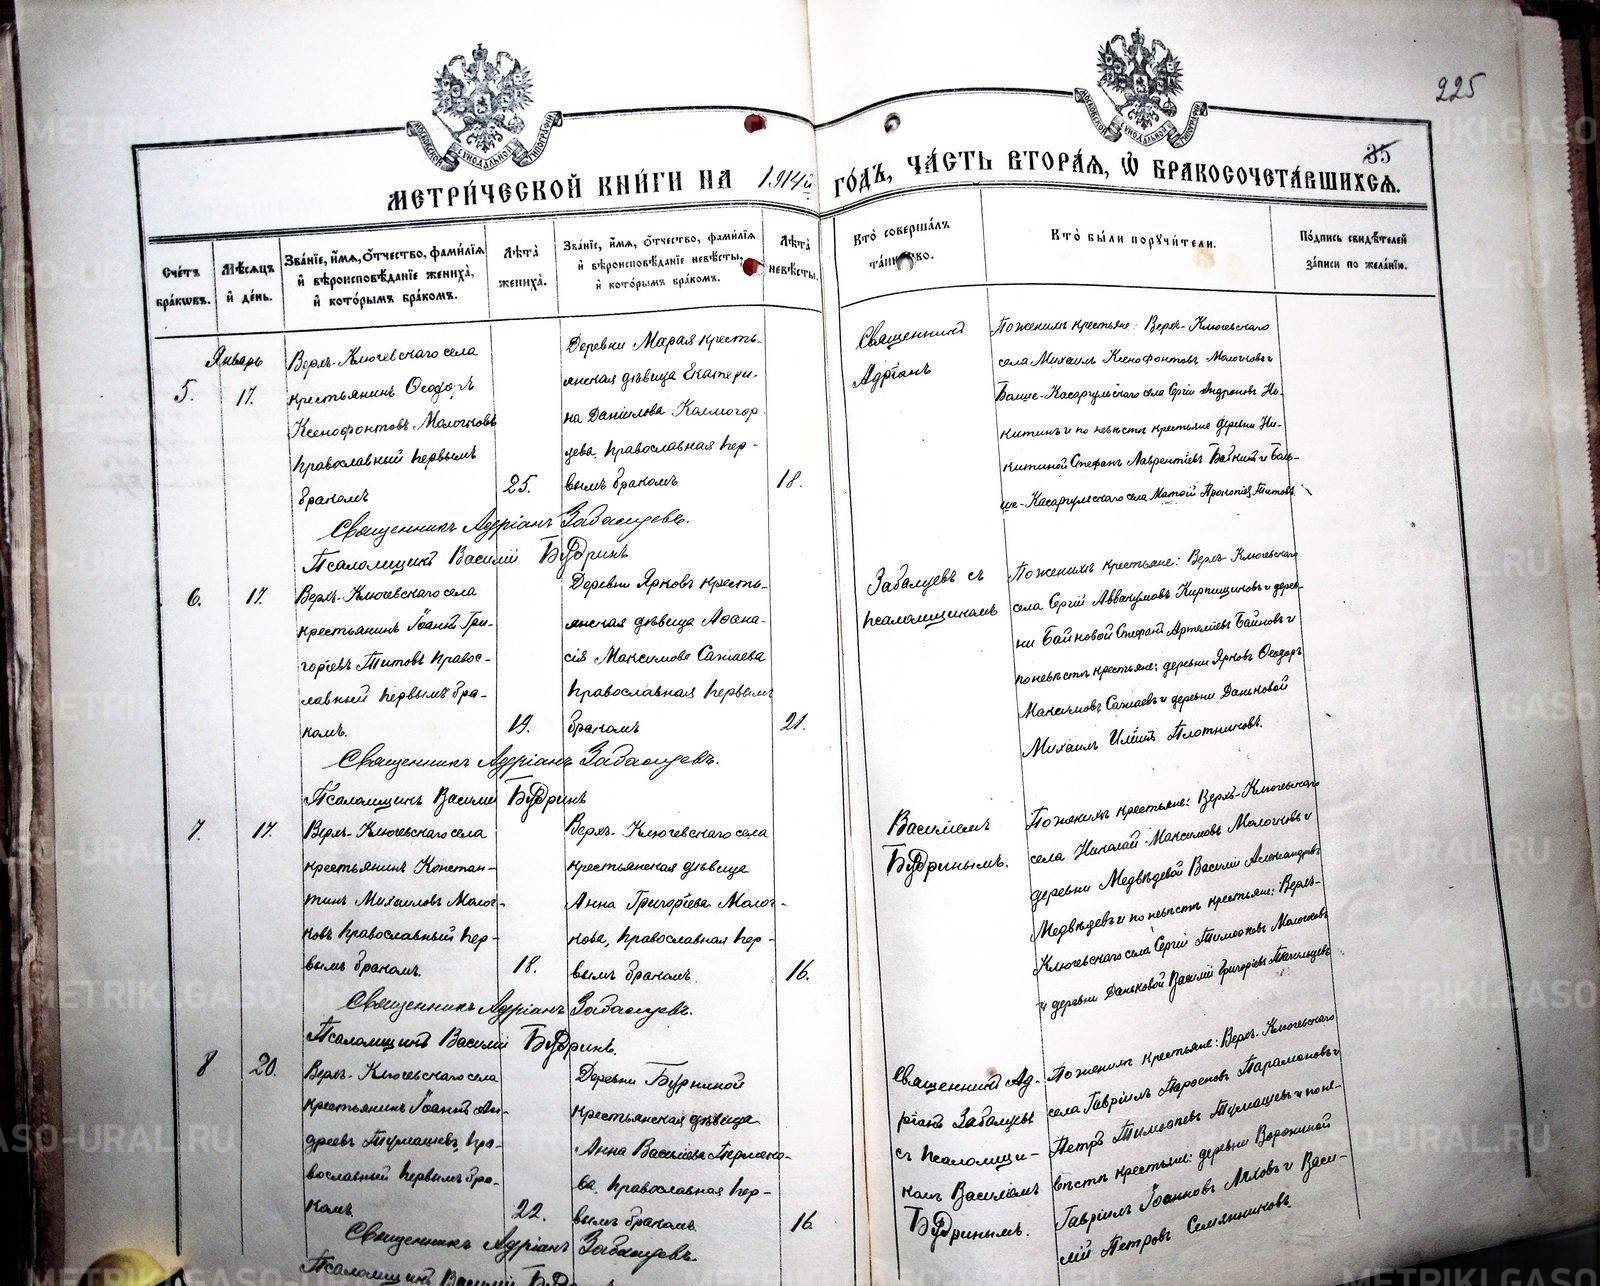 225
35
МЕТРИ́ЧЕСКОЙ КНИ́ГИ НА 1914й ГО́ДЪ, ЧА́СТЬ ВТОРА́Я, Ѡ҆ БРАКОСОЧЕТА́ВШИХСЯ.
Сче́тъ бра́кѡвъ.
Мѣ́сяцъ и҆ де́нь.
Зва́нїе, и҆́мя, ѻ҆́тчество, фами́лїя и҆ вѣроисповѣ́данїе жениха̀, и҆ кото́рымъ бра́комъ.
Лѣ́та жениха̀.
Зва́нїе, и҆́мя, ѻ҆́тчество, фами́лїя и҆ вѣроисповѣ́данїе невѣ́сты, и҆ кото́рымъ бра́комъ.
Лѣ́та невѣ́сты.
Кто̀ соверша́лъ та́инство.
Кто̀ бы́ли поручи́тели.
По́дпись свидѣ́телей за́писи по жела́нїю.
Январь
5. 17.
Верхъ-Ключевскаго села
крестьянинъ Ѳеодоръ
Ксенофонтовъ Молочковъ
православный первымъ
бракомъ
25.
Деревни Марая кресть-
янская дѣвица Екатери-
на Данилова Колмогор
цева, православная пер-
вымъ бракомъ
18.
Священникъ
Адріанъ
По женихѣ крестьяне: Верхъ-Ключевскаго
села Михаилъ Ксенофонтовъ Молочковъ и
Больше-Касаргульскаго села Сергій Андроновъ Ни-
китинъ и по невѣстѣ крестьяне деревни Ни-
китиной Стефанъ Лаврентіевъ и Боль-
ше-Касаргульскаго села Титовъ
Священникъ Адріанъ Забалуевъ.
Псаломщикъ Василій Бѵдринъ
6. 17.
Верхъ-Ключевскаго села
крестьянинъ Іоаннъ Гри-
горіевъ Титовъ правос-
лавный первымъ бра-
комъ.
19.
Деревни Ярковъ кресть-
янская дѣвица Аѳана-
сія Максимова Сажаева
православная первымъ
бракомъ
21.
Забалуевъ съ
псаломщикомъ
По женихѣ крестьяне: Верхъ-Ключевскаго
села Сергій Аввакумовъ Кирпищиковъ и дерев-
ни Байновой Стефанъ Артеміевъ Байновъ и
по невѣстѣ крестьяне: деревни Ярковъ Ѳеодоръ
Максимовъ Сажаевъ и деревни Даньковой
Михаилъ Плотниковъ.
Священникъ Адріанъ Забалуевъ.
Псаломщикъ Василій Бѵдринъ
7. 17.
Верхъ-Ключевскаго села
крестьянинъ Констан-
тинъ Михаиловъ Молоч-
ковъ православный пер-
вымъ бракомъ.
18.
Верхъ-Ключевскаго села
крестьянская дѣвица
Анна Григоріева Молоч-
кова, православная пер-
вымъ бракомъ.
16.
Василіемъ
Бѵдринымъ.
По женихѣ крестьяне: Верхъ-Ключевскаго
села Николай Максимовъ Молочковъ и
деревни Медвѣдевой Василій Александровъ
Медвѣдевъ и по невѣстѣ крестьяне: Верхъ-
Ключевскаго села Сергій Тимоѳеевъ Молочковъ
и деревни Даньковой Василій Григоріевъ
Священникъ Адріанъ Забалуевъ.
Псаломщикъ Василій Бѵдринъ.
8 20.
Верхъ-Ключевскаго села
крестьянинъ Іоаннъ Ан-
дреевъ Тумашевъ, пра-
вославный первымъ бра-
комъ
22.
Деревни Бурниной
крестьянская дѣвица
Анна Василіева Пермяко-
ва, православная пер-
вымъ бракомъ
16
Священникъ Ад-
ріанъ Забалуевъ
съ псаломщи-
комъ Василіемъ
Бѵдринымъ.
По женихѣ крестьяне: Верхъ-Ключевскаго
села Гавріилъ Парамоновъ и
Петръ Тимоѳеевъ Тумашевъ и по не-
вѣстѣ крестьяне: деревни Ворониной
Гавріилъ Іоанновъ Ляховъ и Васи-
лій Петровъ Семянниковъ.
Священникъ Адріанъ Забалуевъ.
Псаломщикъ Василій Бѵдринъ
METRIKI.GASO-URAL.RU